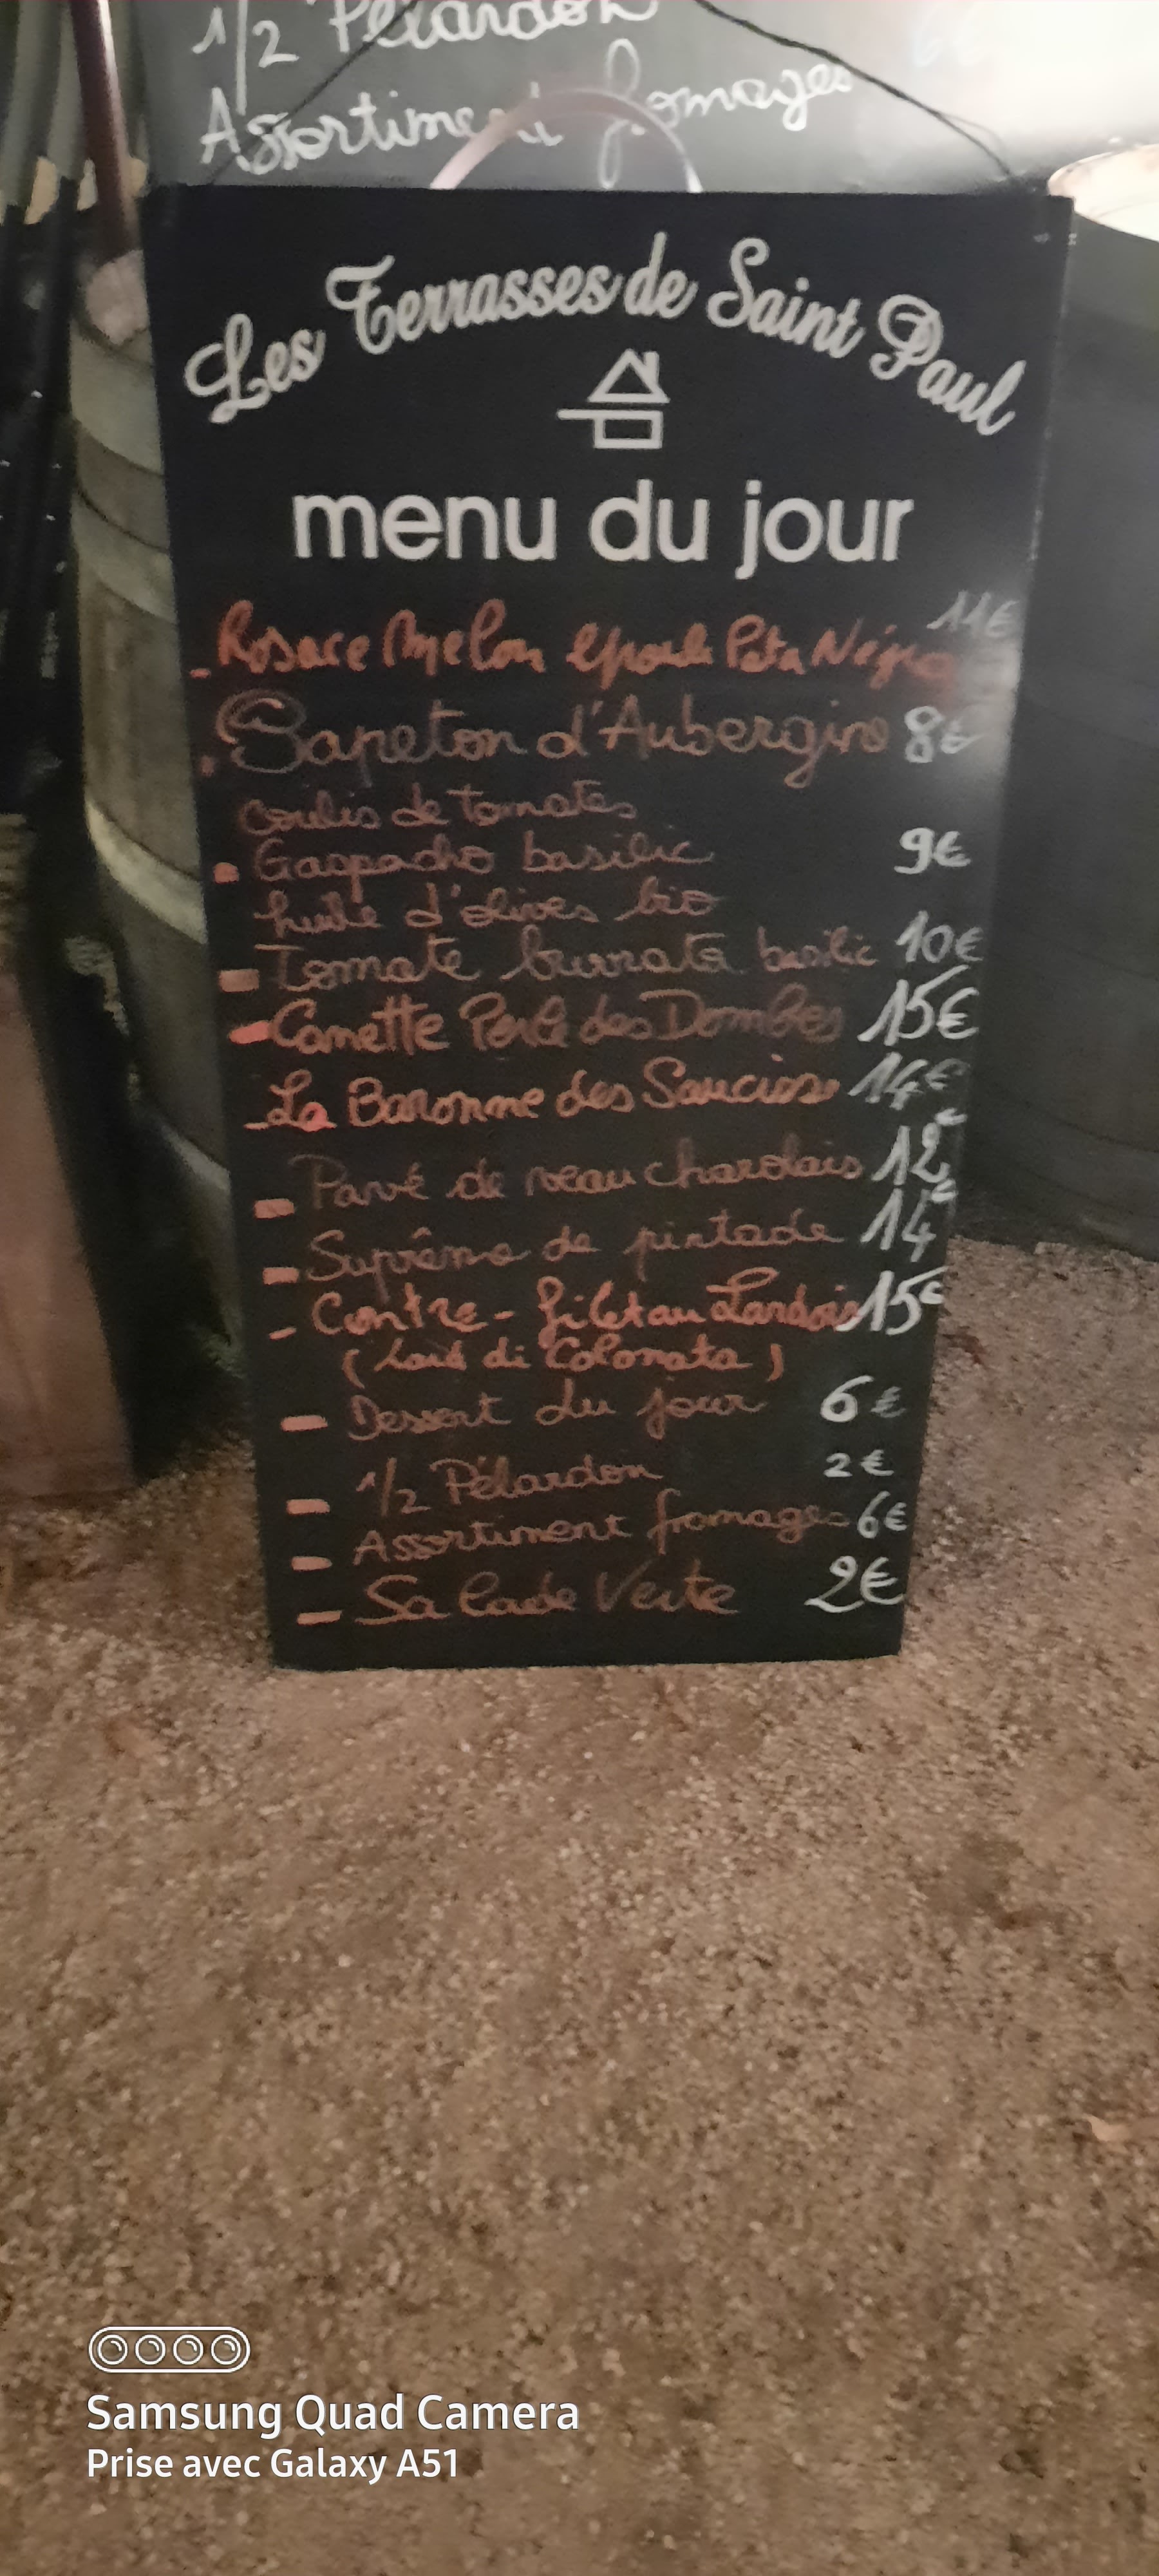 1/2 Pélardon 6€
Assortiment fromages
Les Terrasses de Saint Paul
menu du jour
- Rosace Melon épaule Pata Négra 11€
. Papeton d'Aubergine 8€
coulis de tomates
- Gaspacho basilic 9€
huile d'olives bio
- Tomate burrata basilic 10€
- Canette Perle des Dombes 15€
- La Baronne des Saucisses 14€
- Pavé de veau charolais 12€
- Suprême de pintade 14€
- Contre-filet au Lardois 15€
( Lard di Colonata )
- Dessert du jour 6€
- 1/2 Pélardon 2€
- Assortiment fromages 6€
- Salade Verte 2€
Samsung Quad Camera
Prise avec Galaxy A51